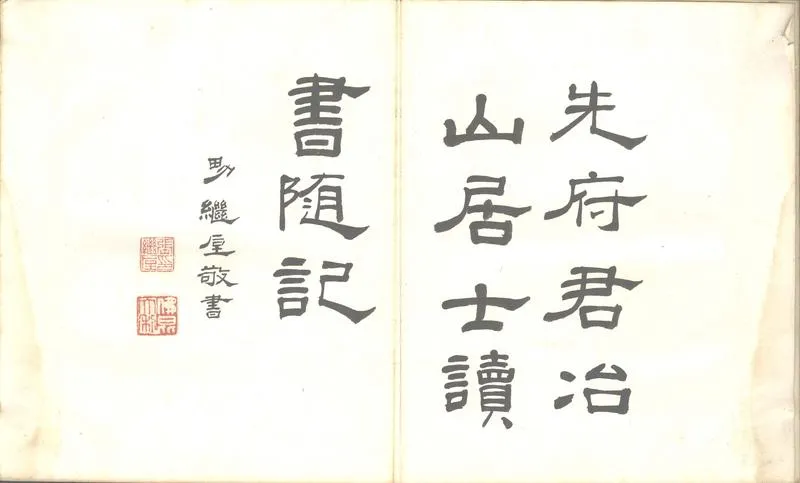 先府君冶
山居士讀
書随記
男繼敬書